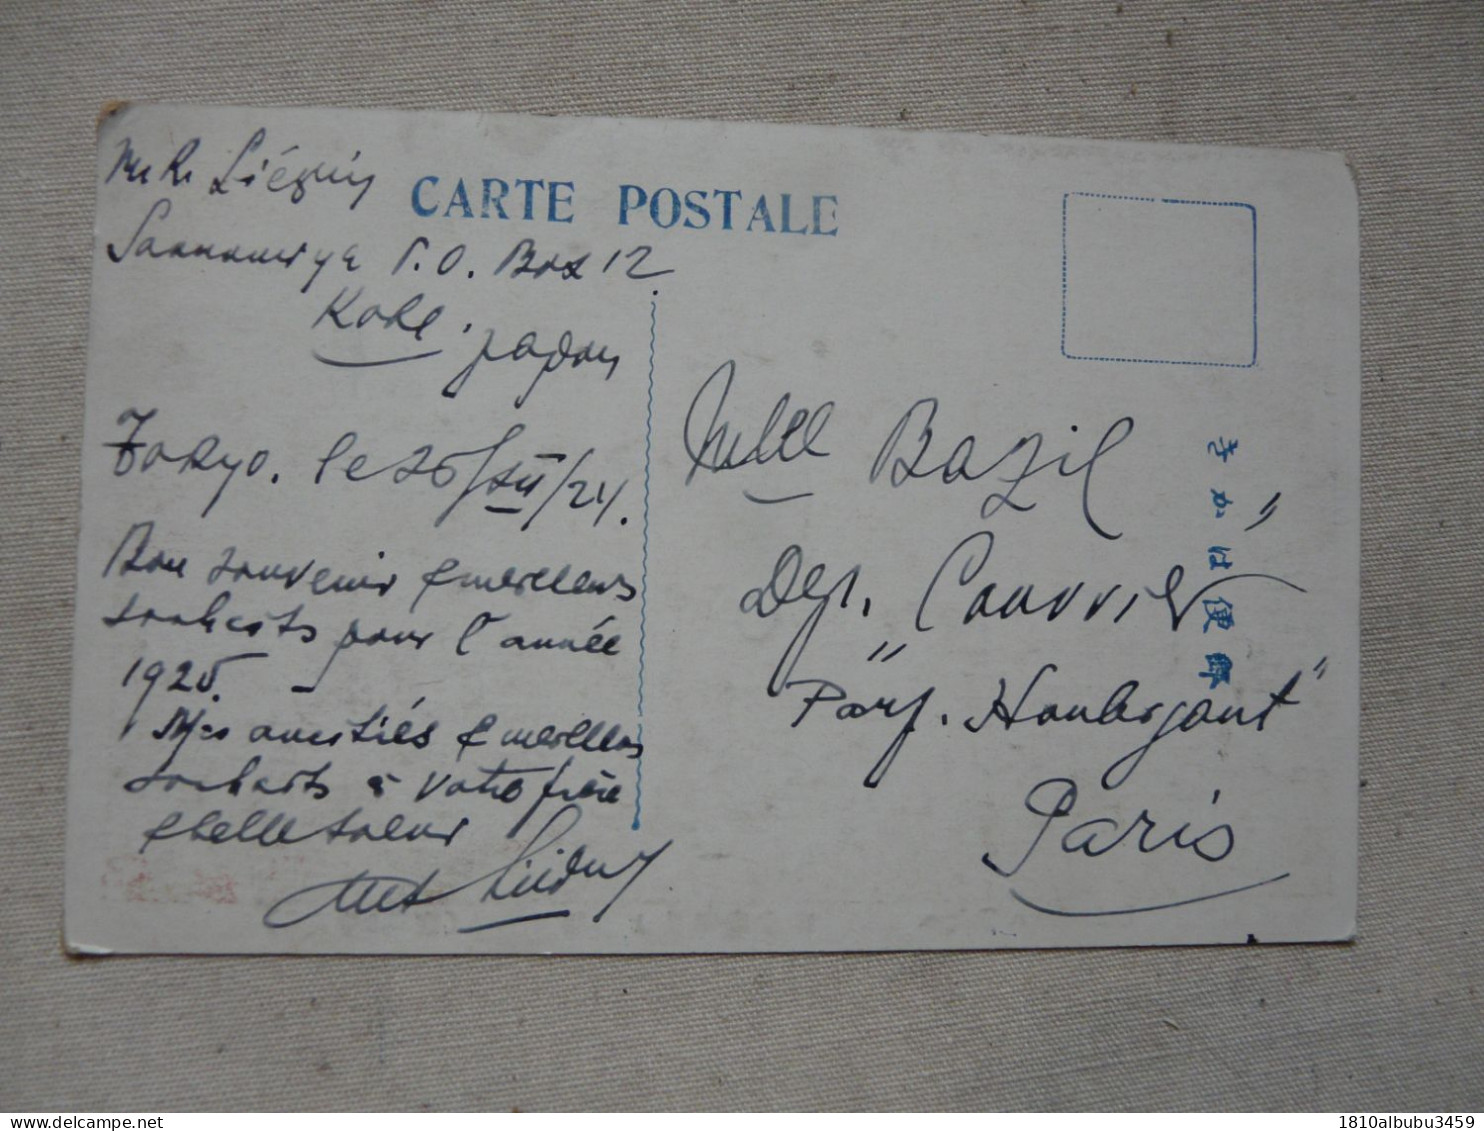 CARTE POSTALE
Sannomiya P.O. Box 12
Kobe.
Japan
Tokyo. le 25/XII/24.
Bon souvenir & meilleurs
souhaits pour l'année
1925.
Mes amitiés & meilleurs
souhaits à votre frère
& belle soeur
Mlle Bazil
Dep. Couvrier
"Parf. Houbigant"
Paris
きかは便郵
1810albubu3459